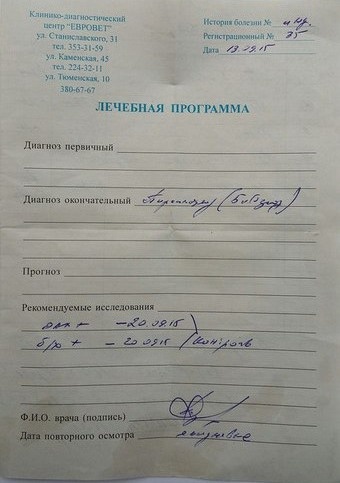 Клинико-диагностический
центр "ЕВРОВЕТ"
ул. Станиславского, 31
тел. 353-31-59
ул. Каменская, 45
тел. 224-32-11
ул. Тюменская, 10
380-67-67
История болезни №
Регистрационный № 35
Дата 13.09.15
ЛЕЧЕБНАЯ ПРОГРАММА
Диагноз первичный
Диагноз окончательный
Прогноз
Рекомендуемые исследования
оак + - 20.09.15
б/х + - 20.09.15 / Контроль
Ф.И.О. врача (подпись)
Дата повторного осмотра